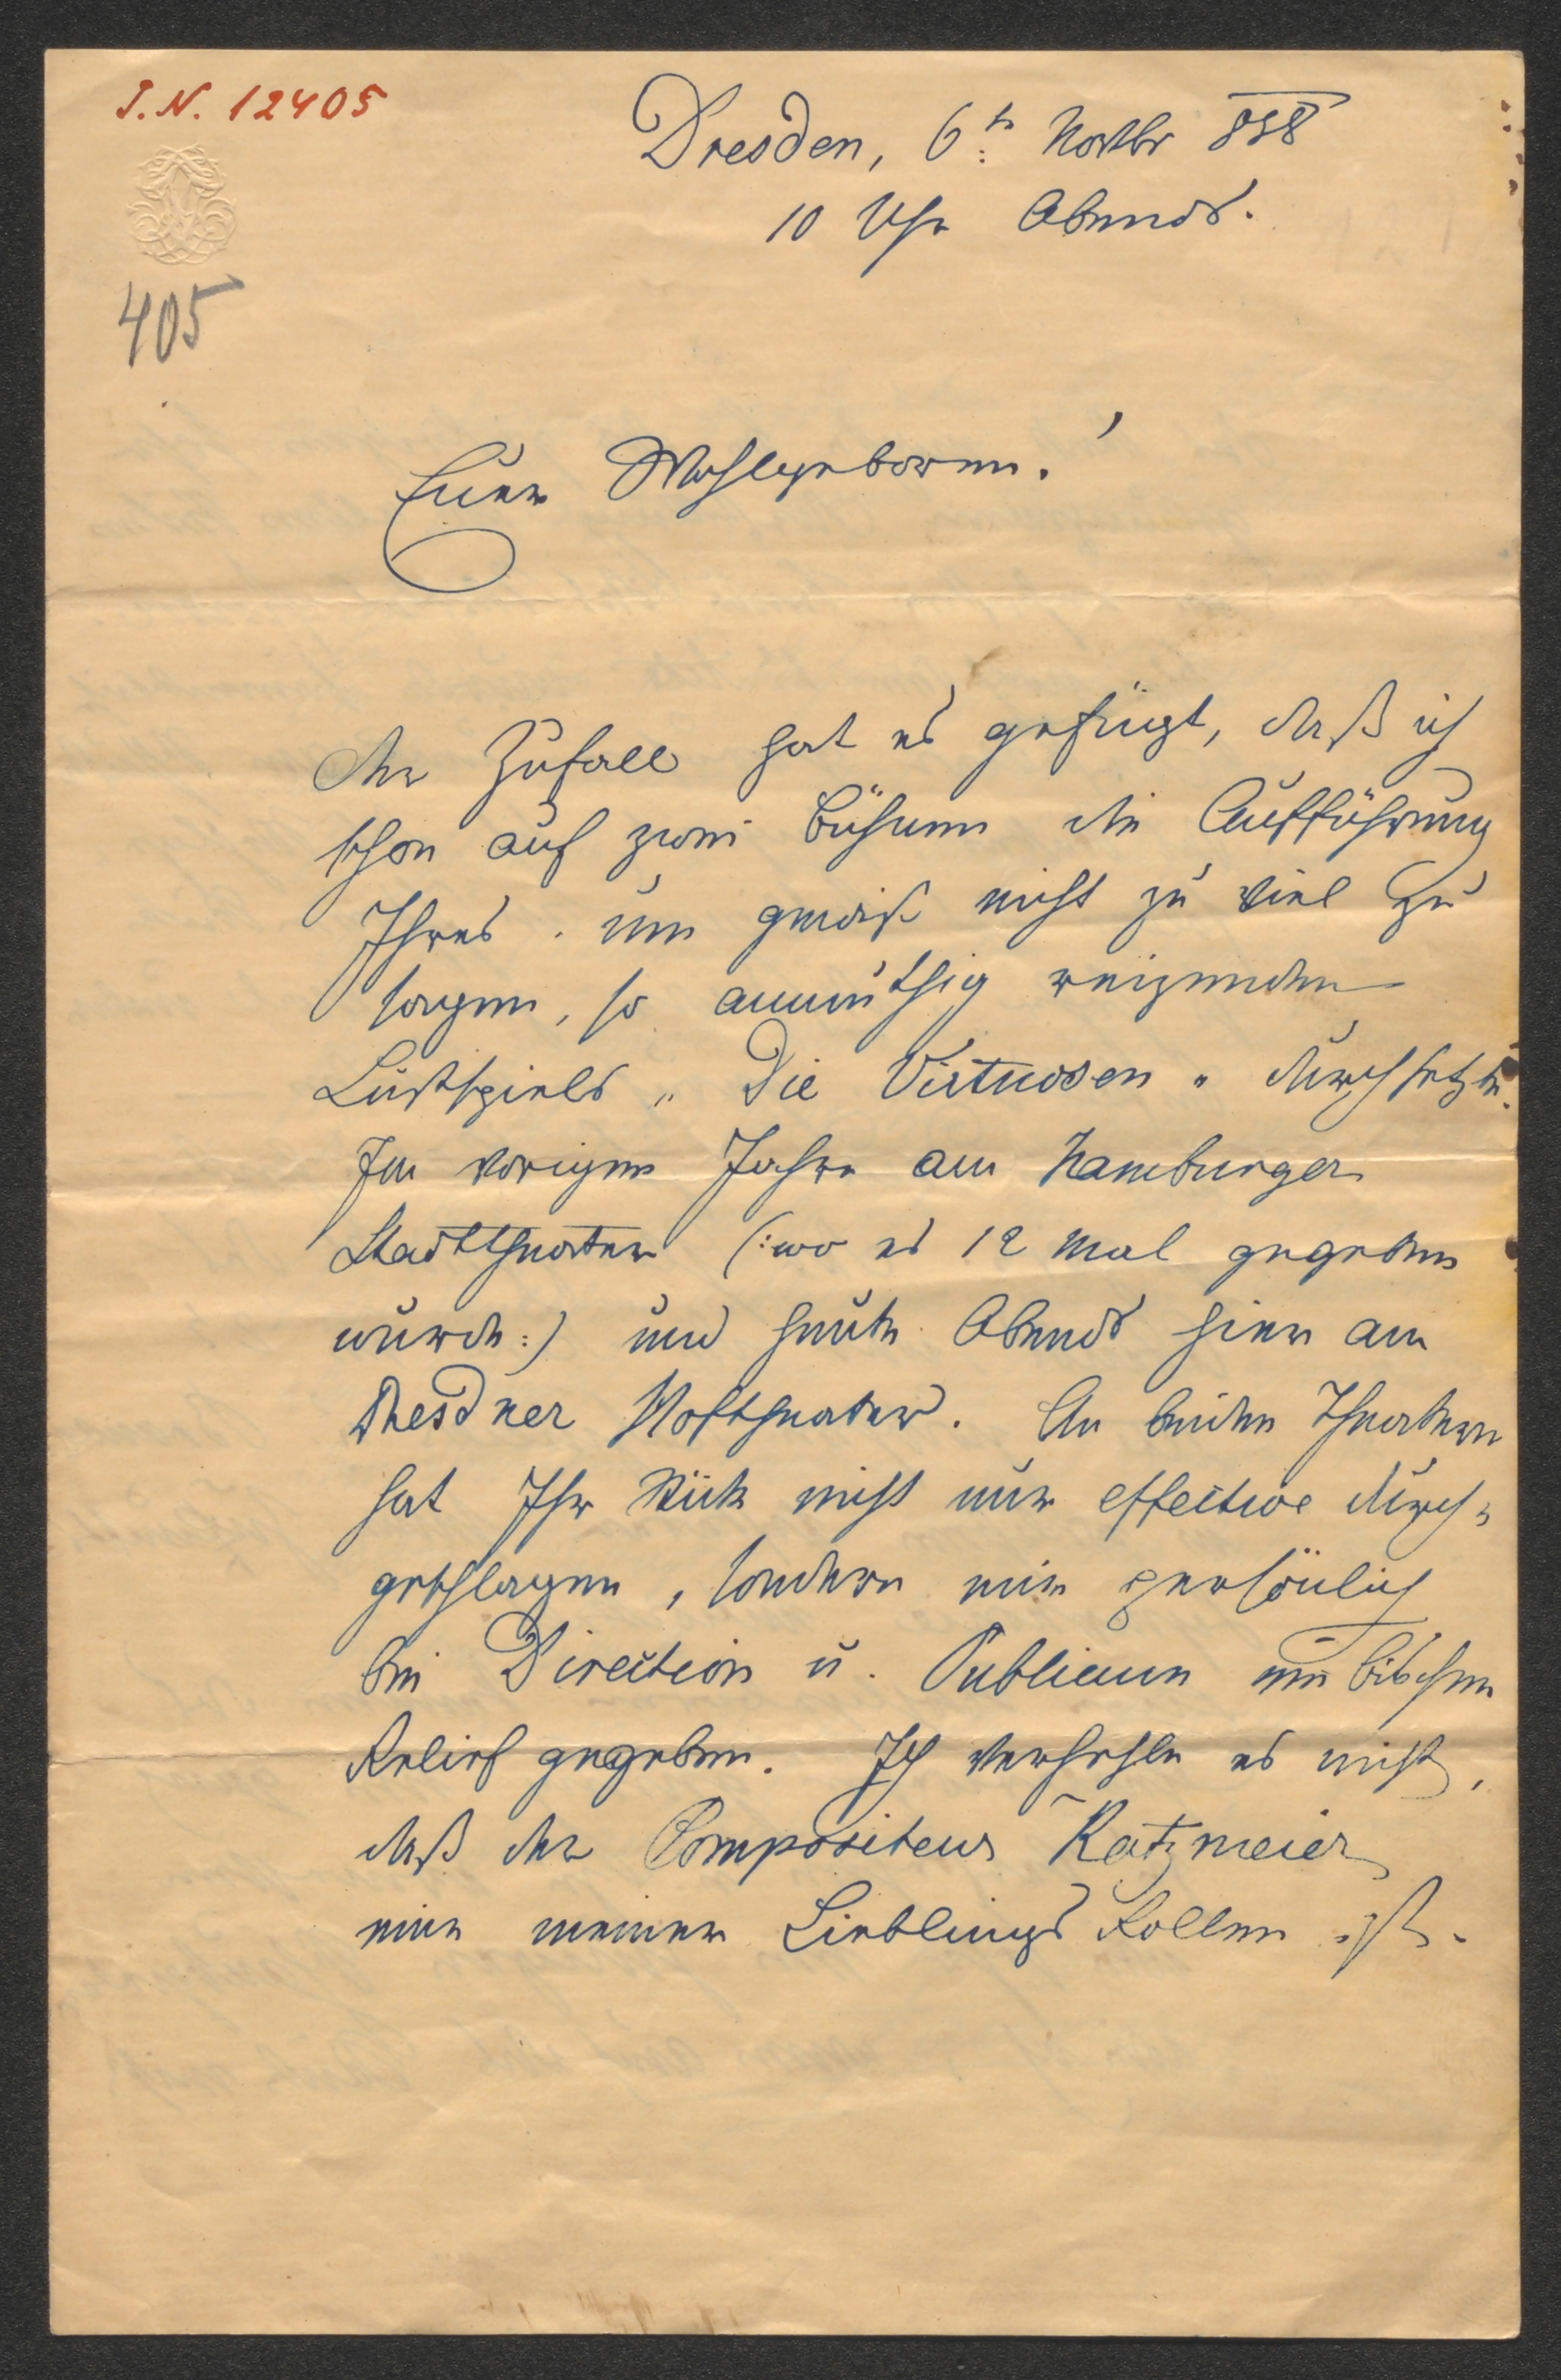 I.N. 12405
Dresden, 6t: Novbr 858
10 Uhr Abends.
405
Euer Wohlgeboren!
Der Zufall hat es gefügt, daß ich
schon auf zwei Bühnen die Aufführung
Ihres, um gewiß nicht zu viel zu
sagen, so anmuthig reizenden
Lustspiels „Die Virtuosen" durchsetzte.
Im vorigen Jahre am Hamburger
Stadttheater (: wo es 12 Mal gegeben
wurde :) und heute Abends hier am
Dresdner Hoftheater. An beiden Theatern
hat Ihr Stück nicht nur effective durch=
geschlagen, sondern mir persönlich
bei Direction u. Publicum ein bischen
Relief gegeben. Ich verhehle es nicht,
daß der Compositeur Katzmeier
eine meiner Lieblings Rollen ist.